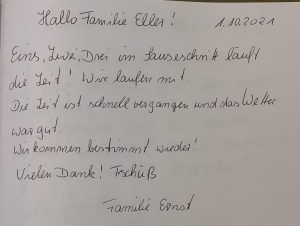 Hallo Familie Eller!
1.10.2021
Eins, Zwei, Drei im Sauseschritt läuft
die Zeit! Wir laufen mit.
Die Zeit ist schnell vergangen und das Wetter
war gut.
Wir kommen bestimmt wieder!
Vielen Dank! Tschüß
Familie Ernst